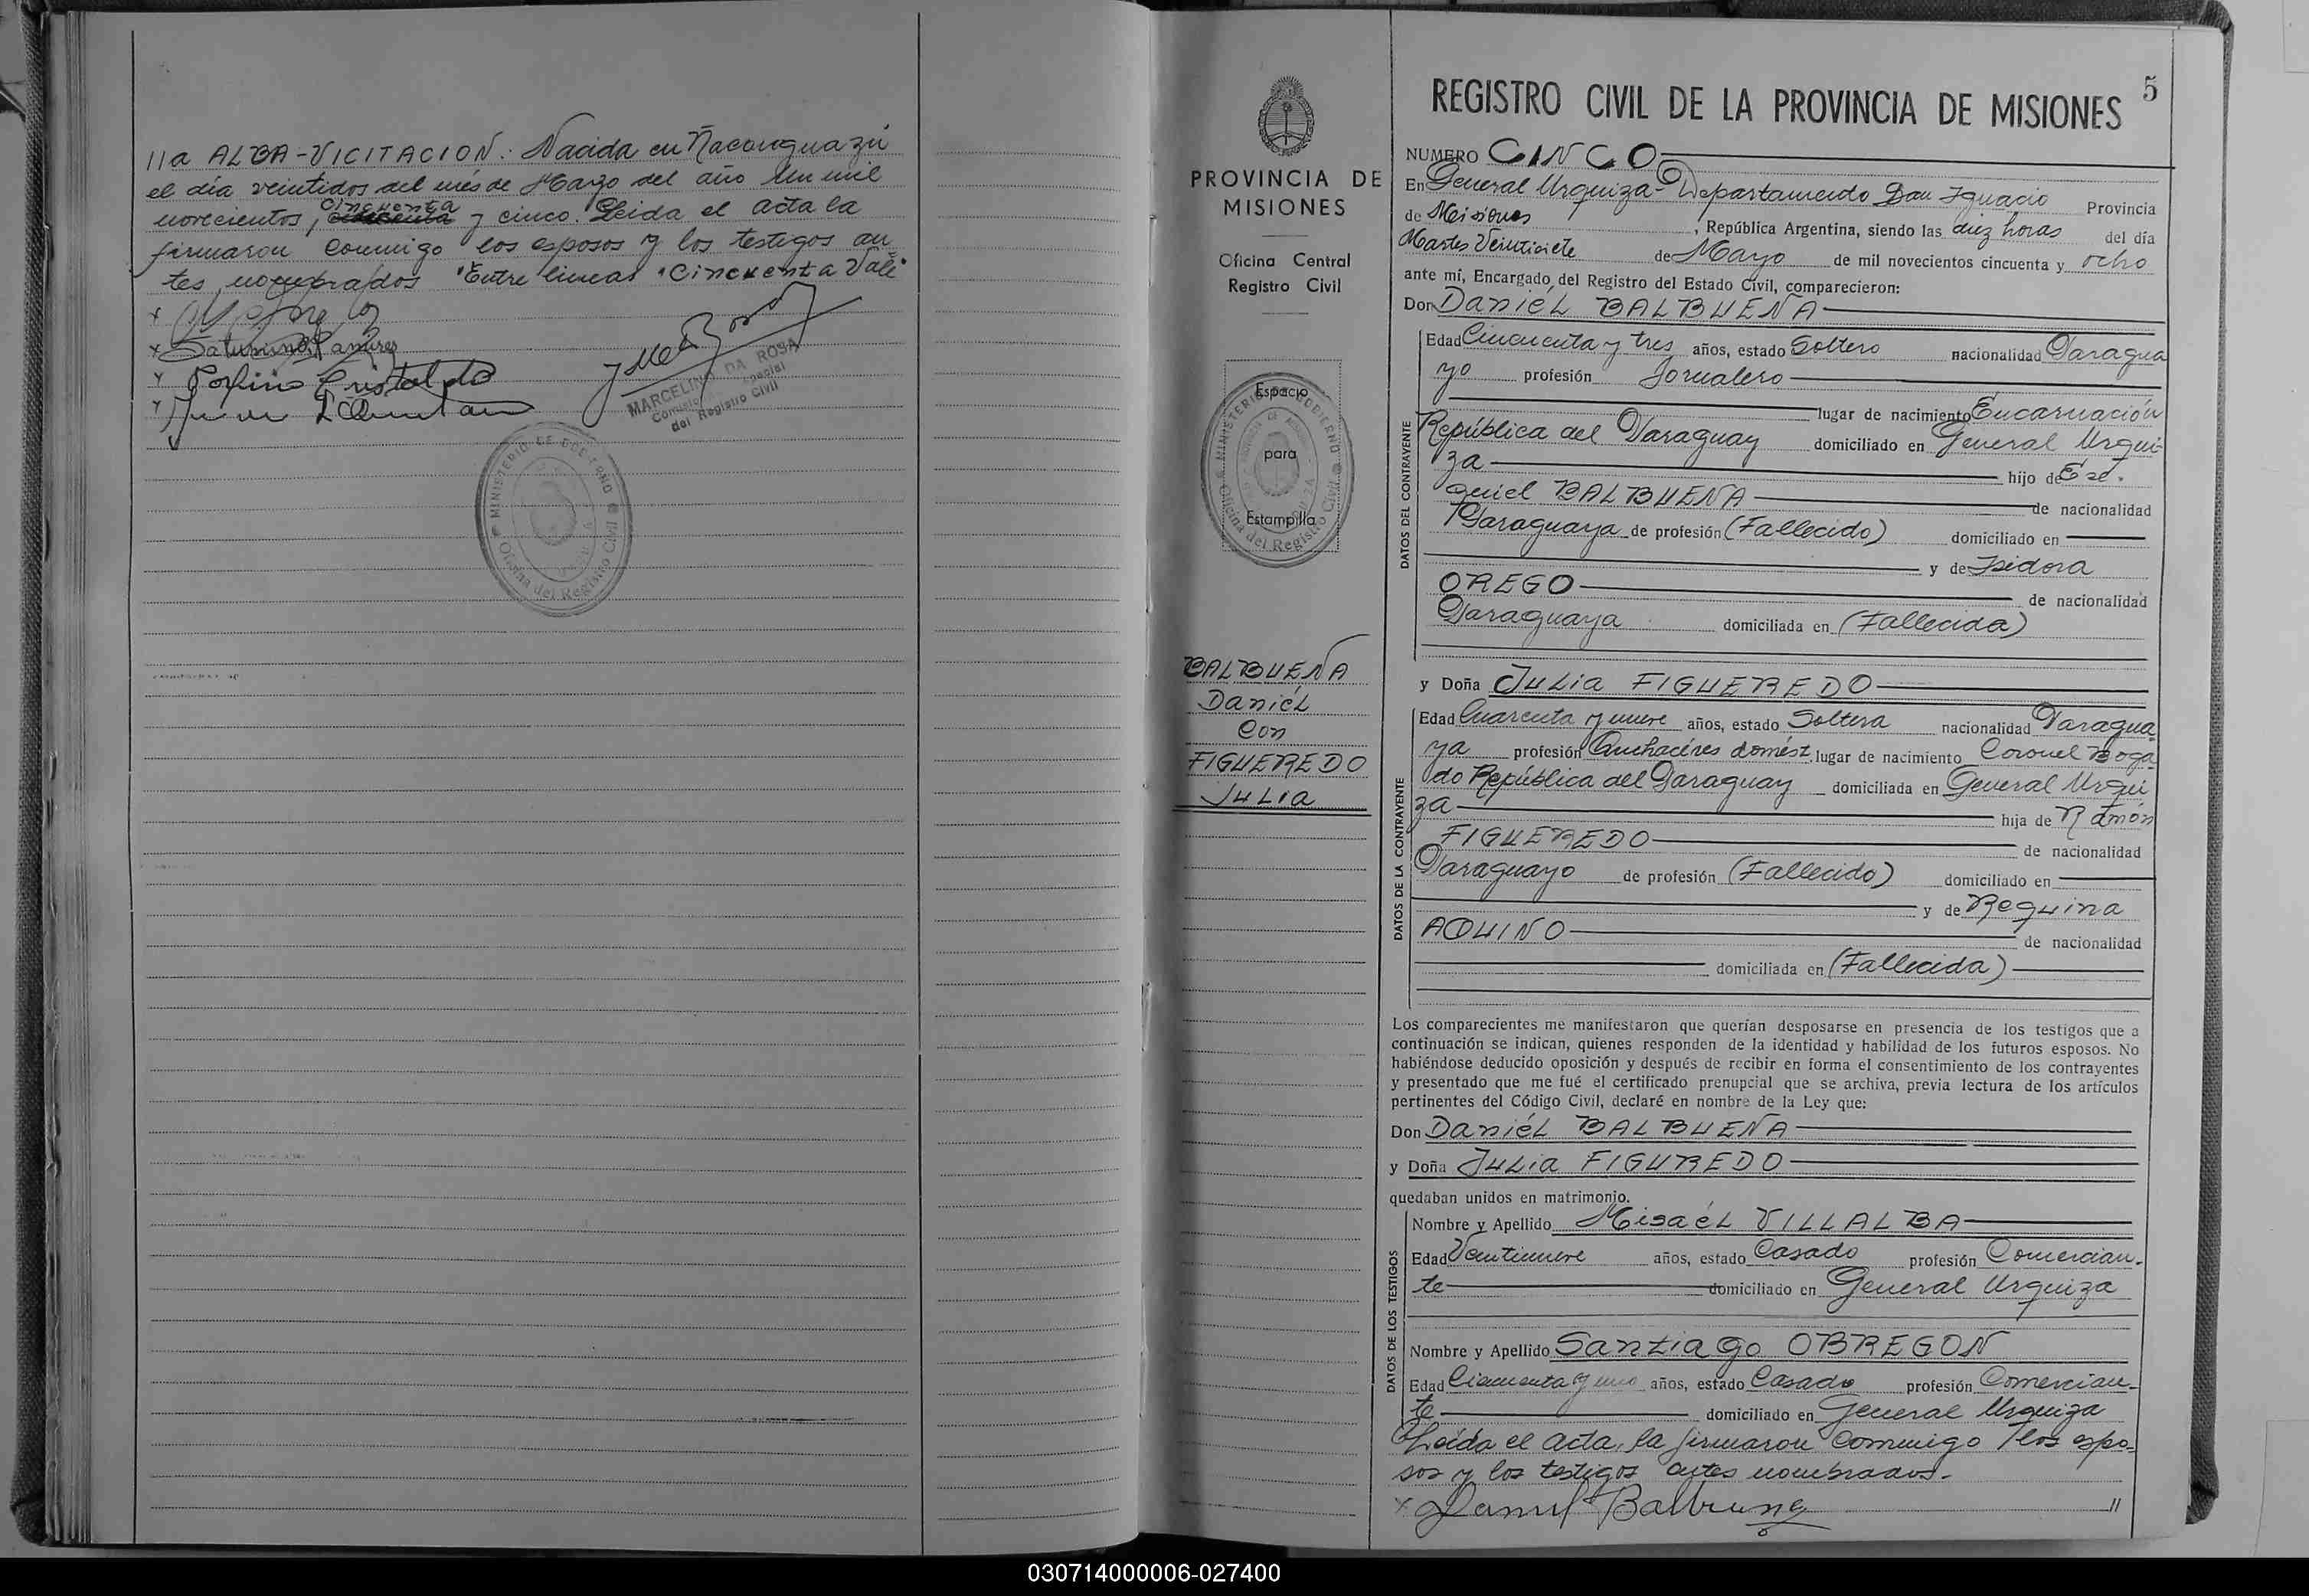 //a ALBA-VICITACION. Nacida en Ñacanguazú
el día veintidos del mes de Marzo del año un mil
novecientos, cincuenta y cinco. Leida el acta la
firmaron conmigo los esposos y los testigos an
tes nombrados "Entre lineas "Cincuenta Vale"
x
x Saturnino Ramirez
x Porfirio Cristaldo
x
MARCELINO DA ROSA
del Registro Civil
MINISTERIO DE GOBIERNO
Oficina del Registro Civil
PROVINCIA DE
MISIONES
Oficina Central
Registro Civil
Espacio
para
Estampilla
MINISTERIO DE GOBIERNO
Oficina del Registro Civil
BALBUENA
Daniél
Con
FIGUEREDO
Julia
5
REGISTRO CIVIL DE LA PROVINCIA DE MISIONES
NUMERO CINCO
En General Urquiza-Departamento San Ignacio Provincia
de Misiones, República Argentina, siendo las diez horas del día
Martes Veintisiete de Mayo de mil novecientos cincuenta y ocho
ante mí, Encargado del Registro del Estado Civil, comparecieron:
Don Daniél BALBUENA
DATOS DEL CONTRAYENTE
Edad Cincuenta y tres años, estado Soltero nacionalidad Paragua
yo profesión Jornalero
lugar de nacimiento Encarnación
República del Paraguay domiciliado en General Urqui-
za hijo de Eze-
quiel BALBUENA de nacionalidad
Paraguaya de profesión (Fallecido) domiciliado en
y de Isidora
OREGO de nacionalidad
Paraguaya domiciliada en (Fallecida)
y Doña Julia FIGUEREDO
DATOS DE LA CONTRAYENTE
Edad Cuarenta y nueve años, estado Soltera nacionalidad Paragua
ya profesión Quehacéres domést. lugar de nacimiento Coronel Boga-
do República del Paraguay domiciliada en General Urqui
za hija de Ramón
FIGUEREDO de nacionalidad
Paraguayo de profesión (Fallecido) domiciliado en
y de Reguina
AQUINO de nacionalidad
domiciliada en (Fallecida)
Los comparecientes me manifestaron que querían desposarse en presencia de los testigos que a
continuación se indican, quienes responden de la identidad y habilidad de los futuros esposos. No
habiéndose deducido oposición y después de recibir en forma el consentimiento de los contrayentes
y presentado que me fué el certificado prenupcial que se archiva, previa lectura de los artículos
pertinentes del Código Civil, declaré en nombre de la Ley que:
Don Daniél BALBUENA
y Doña Julia FIGUREDO
quedaban unidos en matrimonio.
DATOS DE LOS TESTIGOS
Nombre y Apellido Misaél VILLALBA
Edad Veintinueve años, estado Casado profesión Comercian-
te domiciliado en General Urquiza
Nombre y Apellido Santiago OBREGON
Edad Cincuenta y uno años, estado Casado profesión Comercian-
te domiciliado en General Urquiza
Leída el acta, la firmaron conmigo los espo-
sos y los testigos antes nombrados.-
x Daniel Balbuena //
030714000006-027400